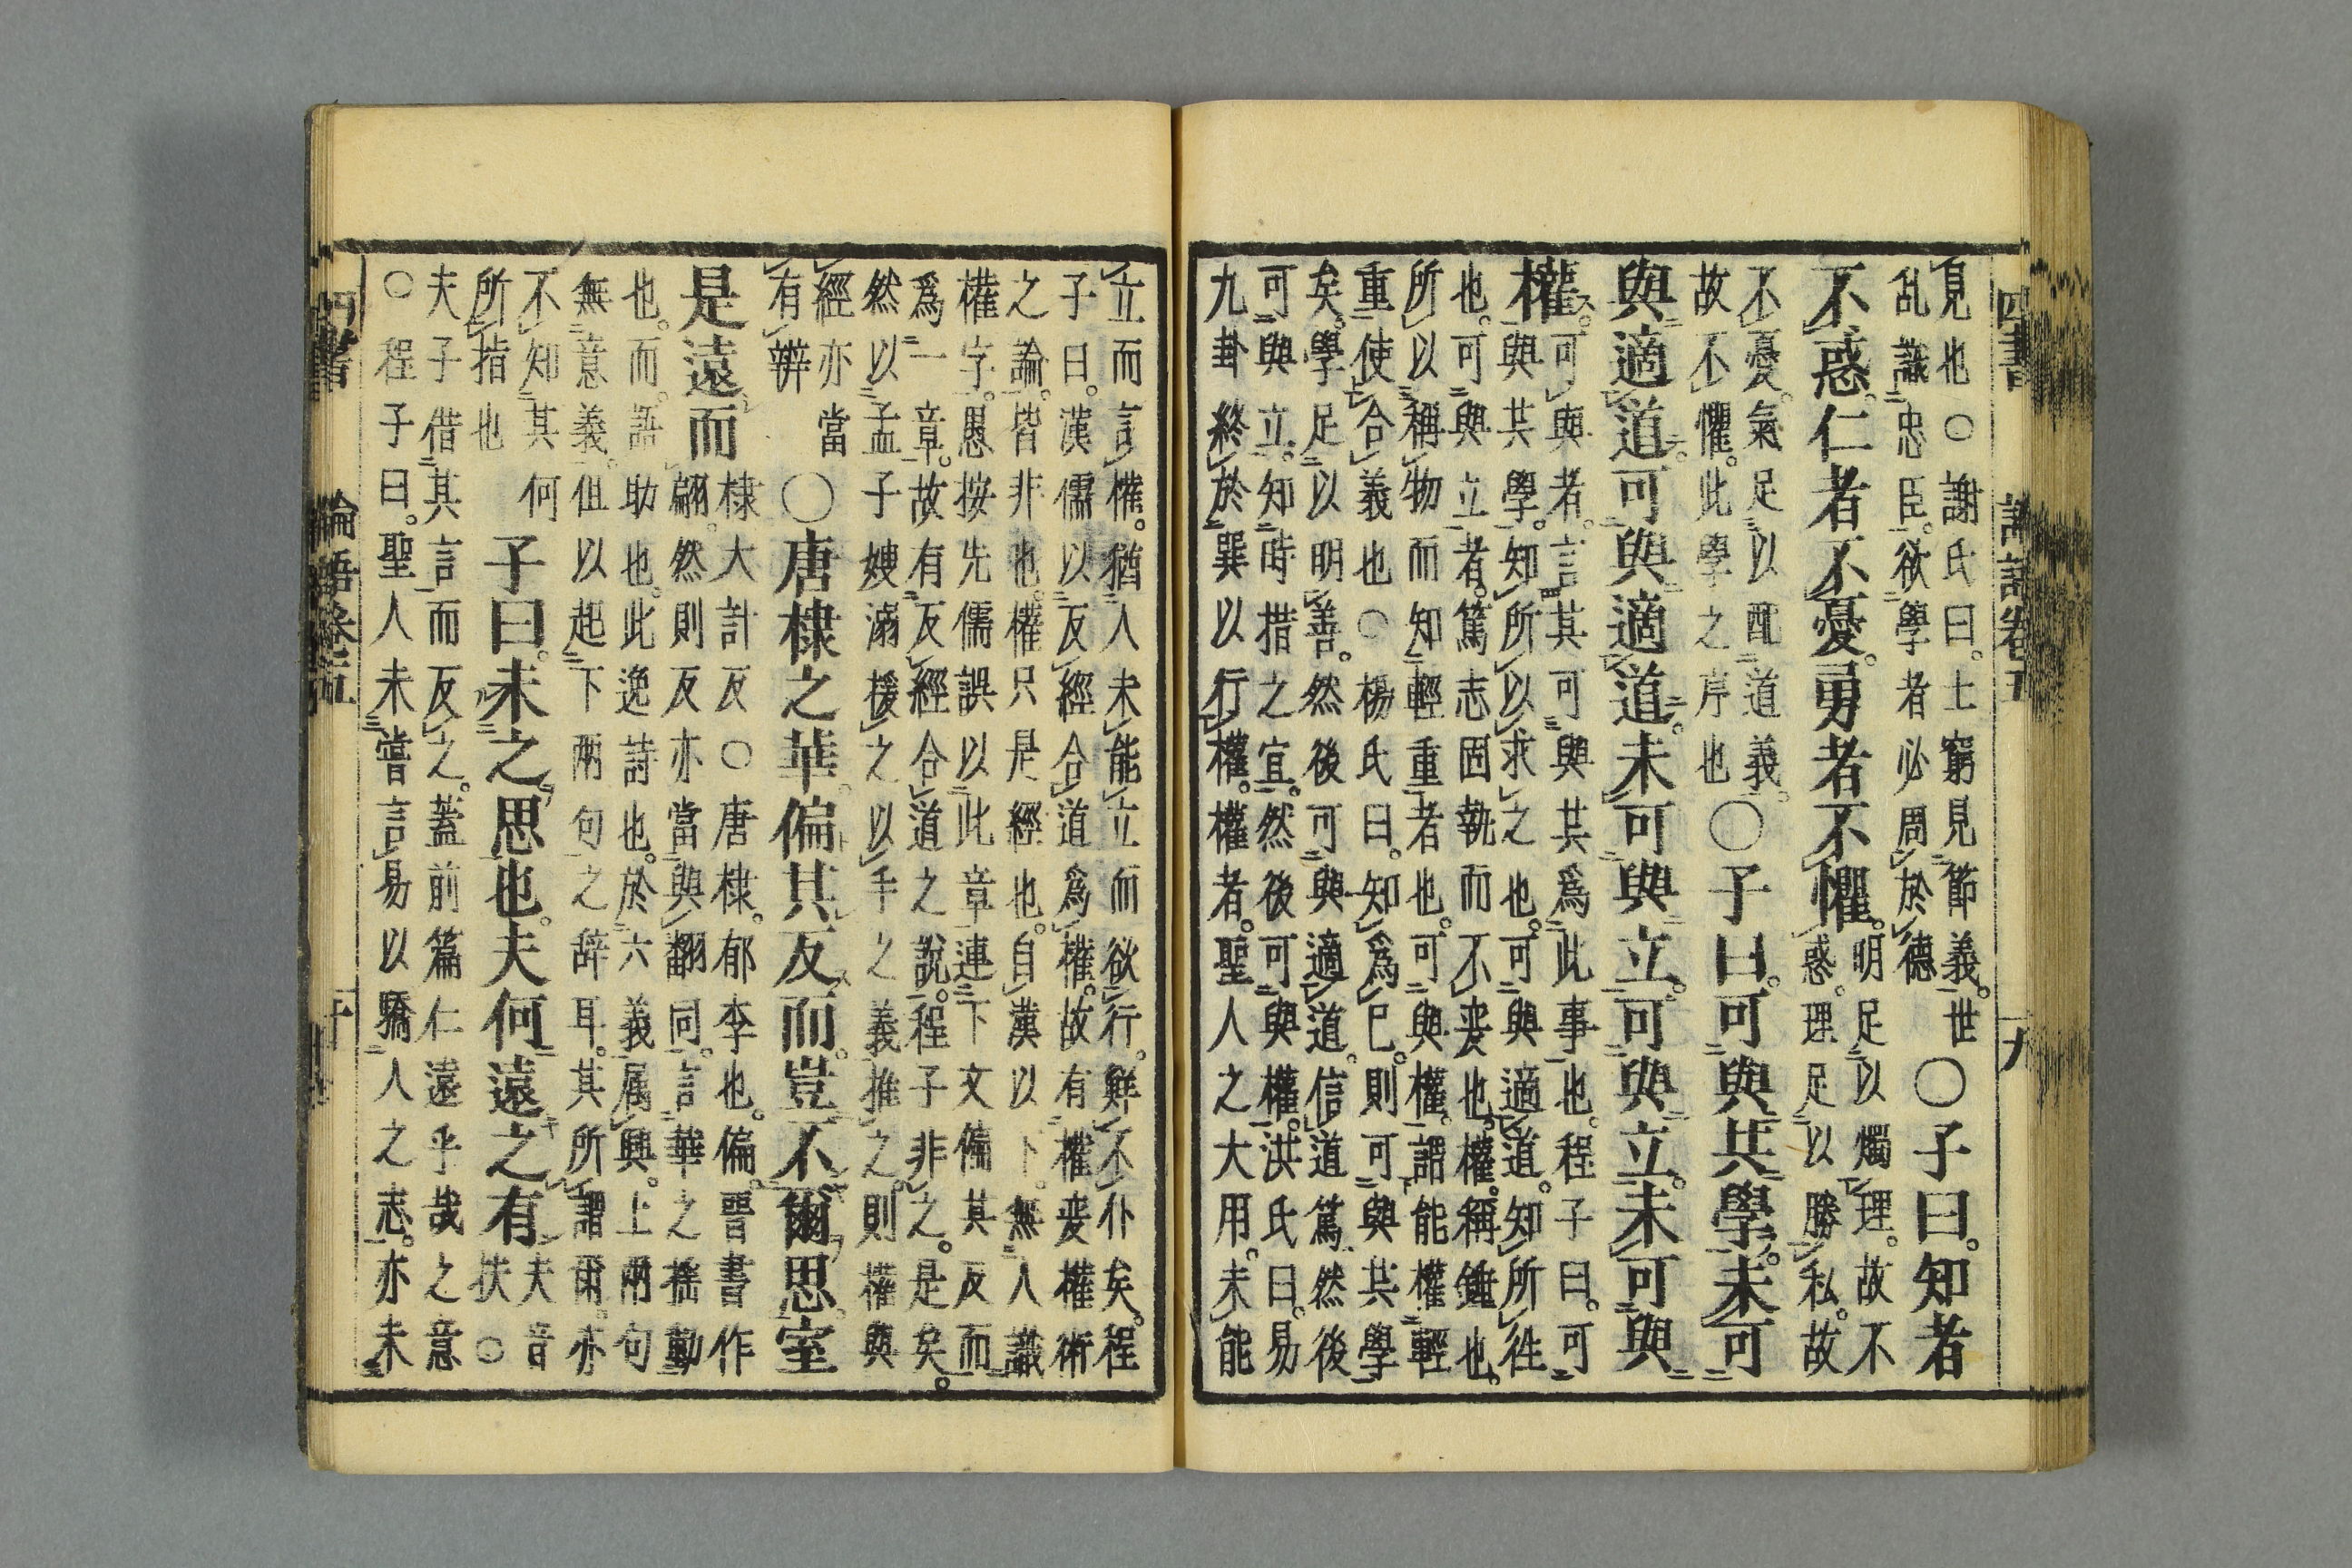 四書 論語卷五 十九
見也○謝氏曰。士窮見節義。世
乱識忠臣。欲學者必周於德
○子曰。知者
不惑。仁者不憂。勇者不懼。
明足以燭理。故不
惑。理足以勝私。故
不憂。氣足以配道義。
故不懼。此學之序也
○子曰。可與共學。未可
與適道。可與適道。未可與立。可與立。未可與
權。
可與者。言其可與其爲此事也。程子曰。可
與共學。知所以求之也。可與適道。知所徃
也。可與立者。篤志固執而不変也。權。稱錘也。
所以稱物而知輕重者也。可與權。謂能權輕
重使合義也○楊氏曰。知爲己。則可與共學
矣。學足以明善。然後可與適道。信道篤。然後
可與立。知時措之宜。然後可與權。洪氏曰。易
九卦終於巽以行權。權者。聖人之大用。未能
立而言權。猶人未能立而欲行。鮮不仆矣。程
子曰。漢儒以反經合道爲權。故有權変權術
之論。皆非也。權只是經也。自漢以下。無人識
權字。愚按先儒誤以此章連下文偏其反而
爲一章。故有反經合道之說。程子非之。是矣。
然以孟子嫂溺援之以手之義推之。則權與
經亦當
有辨
○唐棣之華。偏其反而。豈不爾思。室
是遠。而
棣大計反○唐棣。郁李也。偏。晉書作
翩。然則反亦當與翻同。言華之揺動
也。而。語助也。此逸詩也。於六義属興。上兩句
無意義。但以起下兩句之辞耳。其所謂爾。亦
不知其何
所指也
子曰。未之思也。夫何遠之有
夫音
扶○
夫子借其言而反之。蓋前篇仁遠乎哉之意
○程子曰。聖人未嘗言易以驕人之志。亦未
四書 論語卷五 二十